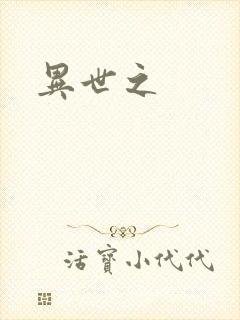 異世之
活寶小代代